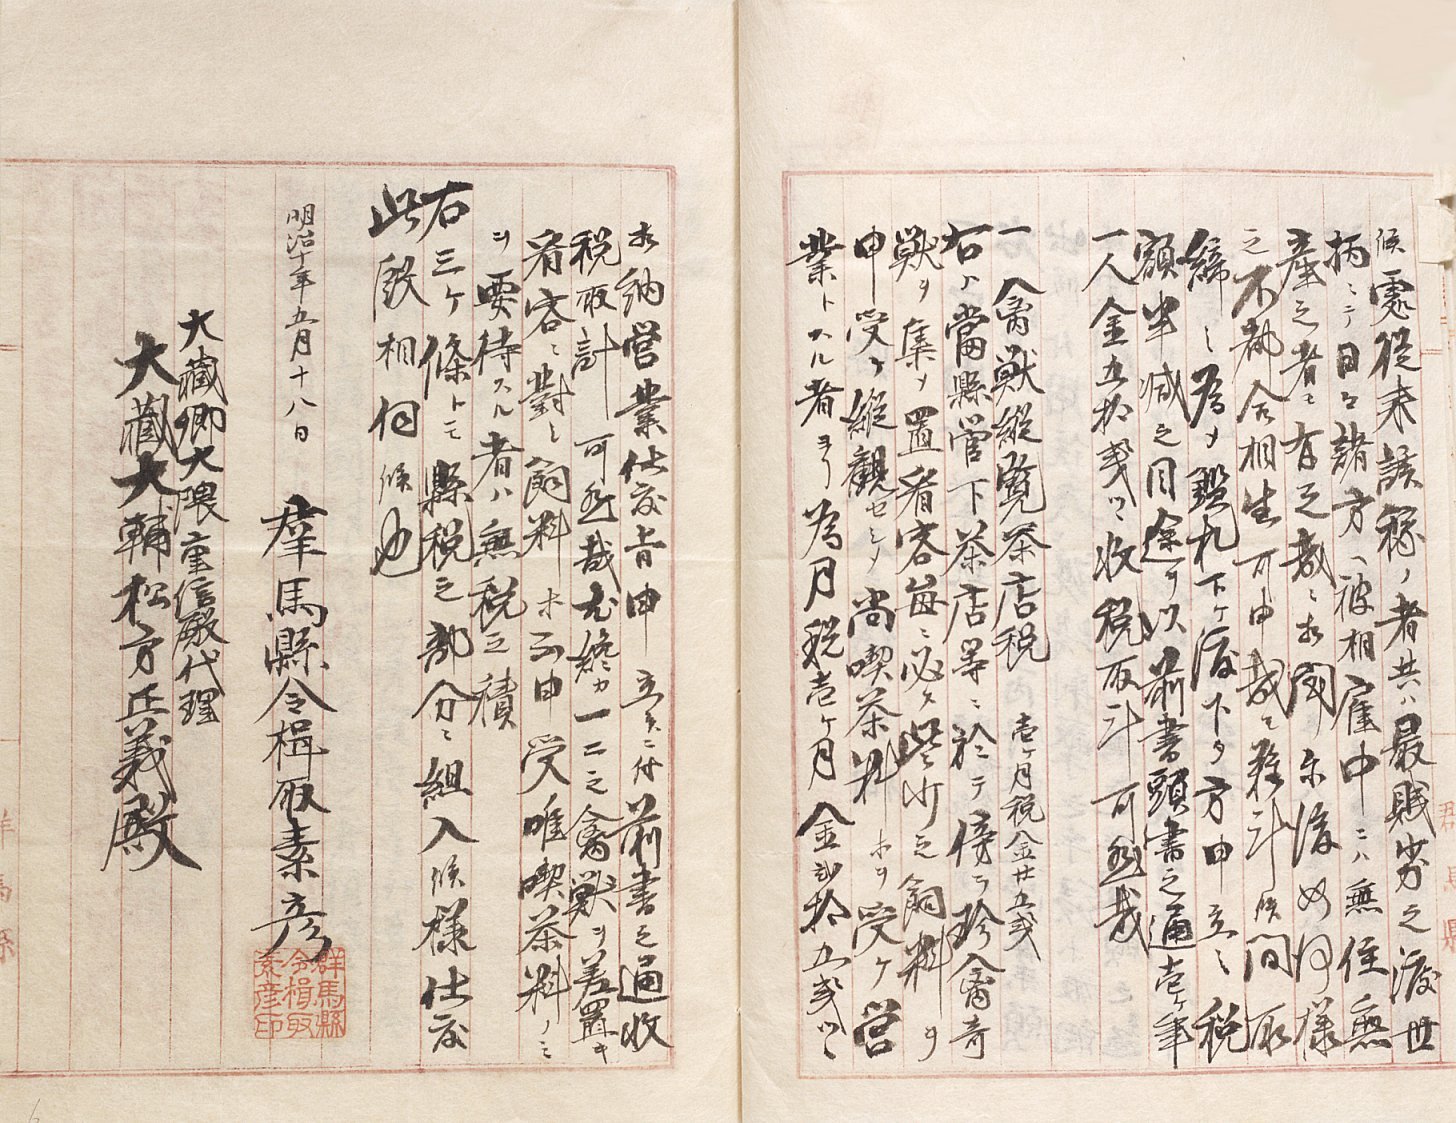 候処従来該稼ノ者共ハ最賎劣之渡世
柄ニテ日々諸方ヘ被相雇中ニハ無住無
産之者モ有之哉ニ相聞尓後如何様
之不都合相生可申哉モ難計候間取
締ノ為メ鑑札下ケ渡下タ方申立シ税
額半減之目途ヲ以前書頭書之通壱ケ年
一人金五拾銭ツヽ収税取計可然哉
一 禽獣縦覧茶店税 壱ケ月税金廿五銭
右ハ當縣管下茶店等ニ於テ傍ラ珍禽奇
獣ヲ集メ置看客毎ニ必ス些少之飼料ヲ
申受ケ縦観セシメ尚喫茶料ホヲ受ケ営
業トスル者ヨリ為月税壱ケ月金弐拾五銭ツヽ
相納営業仕度旨申立候ニ付前書之通収
税取計可然哉尤纔カ一二之禽獣ヲ差置キ
看客ニ對シ飼料ホ不申受唯喫茶料ノミ
ヲ要待スル者ハ無税之積
右三ケ條トモ縣税之部分ニ組入候様仕度
此段相伺候也
明治十年五月十八日
群馬縣令楫取素彦
群馬縣
令楫取
素彦印
大藏卿大隈重信殿代理
大藏大輔松方正義殿